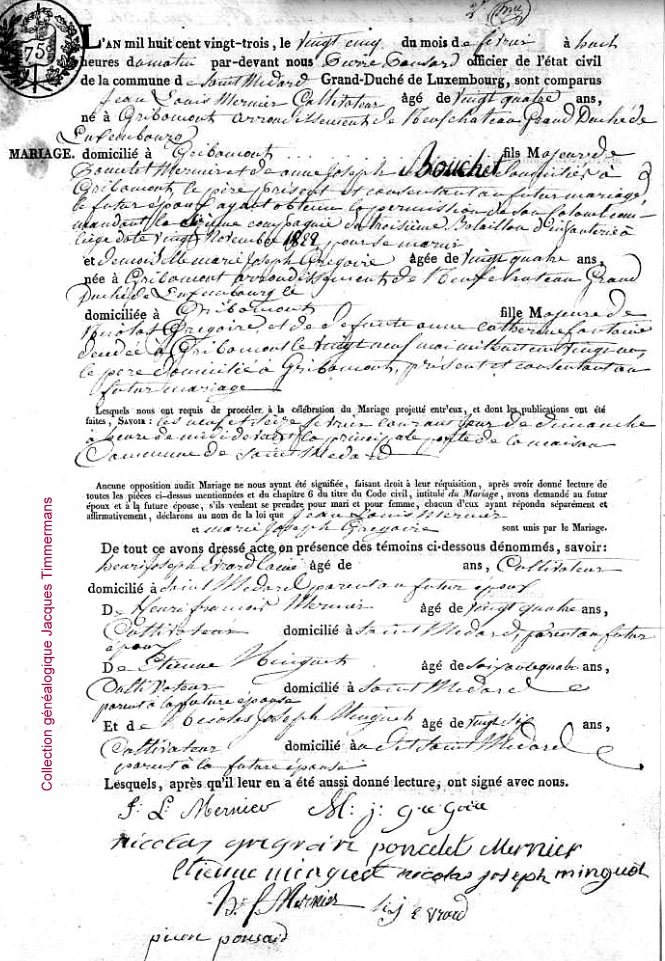 75
L'AN mil huit cent vingt-trois, le vingt cinq du mois de fevrier à huit
heures du matin par-devant nous Pierre Ponsard officier de l'état civil
de la commune de Saint Medard Grand-Duché de Luxembourg, sont comparus
Jean Louis Mernier Cultivateur âgé de vingt quatre ans,
né à Gribomont arrondissement de Neufchateau Grand Duché de
Luxembourg
MARIAGE. domicilié à Gribomont fils Majeur de
Poncelet Mernier et de anne joseph Bouchet domiciliés à
Gribomont, le père présent et consentant au futur mariage,
le futur époux ayant obtenu la permission de son Colonel com-
mandant la compagnie du troisième Bataillon d'infanterie à
liège daté vingt Novembre 1822 pour se marier
et demoiselle marie Joseph Gregoire âgée de vingt quatre ans,
née à Gribomont arrondissement de Neufchateau Grand
Duché de Luxembourg
domiciliée à Gribomont fille Majeure de
Nicolas Gregoire et de defunte anne catherine fontaine
décédée à Gribomont le vingt neuf mai mil huit cent vingt
le père domicilié à Gribomont, présent et consentant au
futur mariage
Lesquels nous ont requis de procéder à la célébration du Mariage projetté entr'eux, et dont les publications ont été
faites, SAVOIR : les neuf et seize fevrier courant jour de dimanche
à heure de midi devant la principale porte de la maison
Commune de Saint Medard
Aucune opposition audit Mariage ne nous ayant été signifiée, faisant droit à leur réquisition, après avoir donné lecture de
toutes les pièces ci-dessus mentionnées et du chapitre 6 du titre du Code civil, intitulé du Mariage, avons demandé au futur
époux et à la future épouse, s'ils veulent se prendre pour mari et pour femme, chacun d'eux ayant répondu séparément et
affirmativement, déclarons au nom de la loi que Jean Louis Mernier
et marie Joseph Gregoire sont unis par le Mariage.
De tout ce avons dressé acte en présence des témoins ci-dessous dénommés, savoir:
henri joseph Evrard âgé de ans, Cultivateur
domicilié à Saint Medard, parent au futur époux
De Henri françois Mernier âgé de vingt quatre ans,
Cultivateur domicilié à Saint Medard, parent au futur
époux
De Etienne Minguet âgé de soixante quatre ans,
Cultivateur domicilié à Saint Medard
parent à la future épouse
Et de Nicolas Joseph Minguet âgé de vingt six ans,
Cultivateur domicilié à u dit Saint Medard
parent à la future épouse
Lesquels, après qu'il leur en a été aussi donné lecture, ont signé avec nous.
J: L: Mernier M: j: gregoire
nicolas gregoire poncelet Mernier
etienne minguet nicolas joseph minguet
h: f Mernier h j evrard
pierre ponsard
Collection généalogique Jacques Timmermans